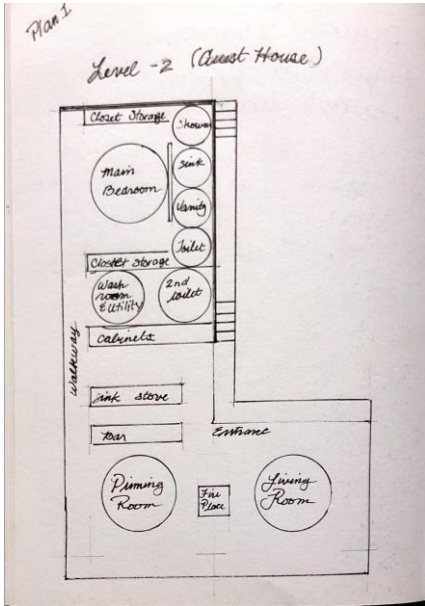 Plan 1
Level -2 (Guest House)
Closet Storage
Shower
Main
Bedroom
Sink
Vanity
Toilet
Closet Storage
Wash
room
& Utility
2nd
toilet
Cabinets
Walkway
Sink stove
Bar
Entrance
Dinning
Room
Fire
Place
Living
Room